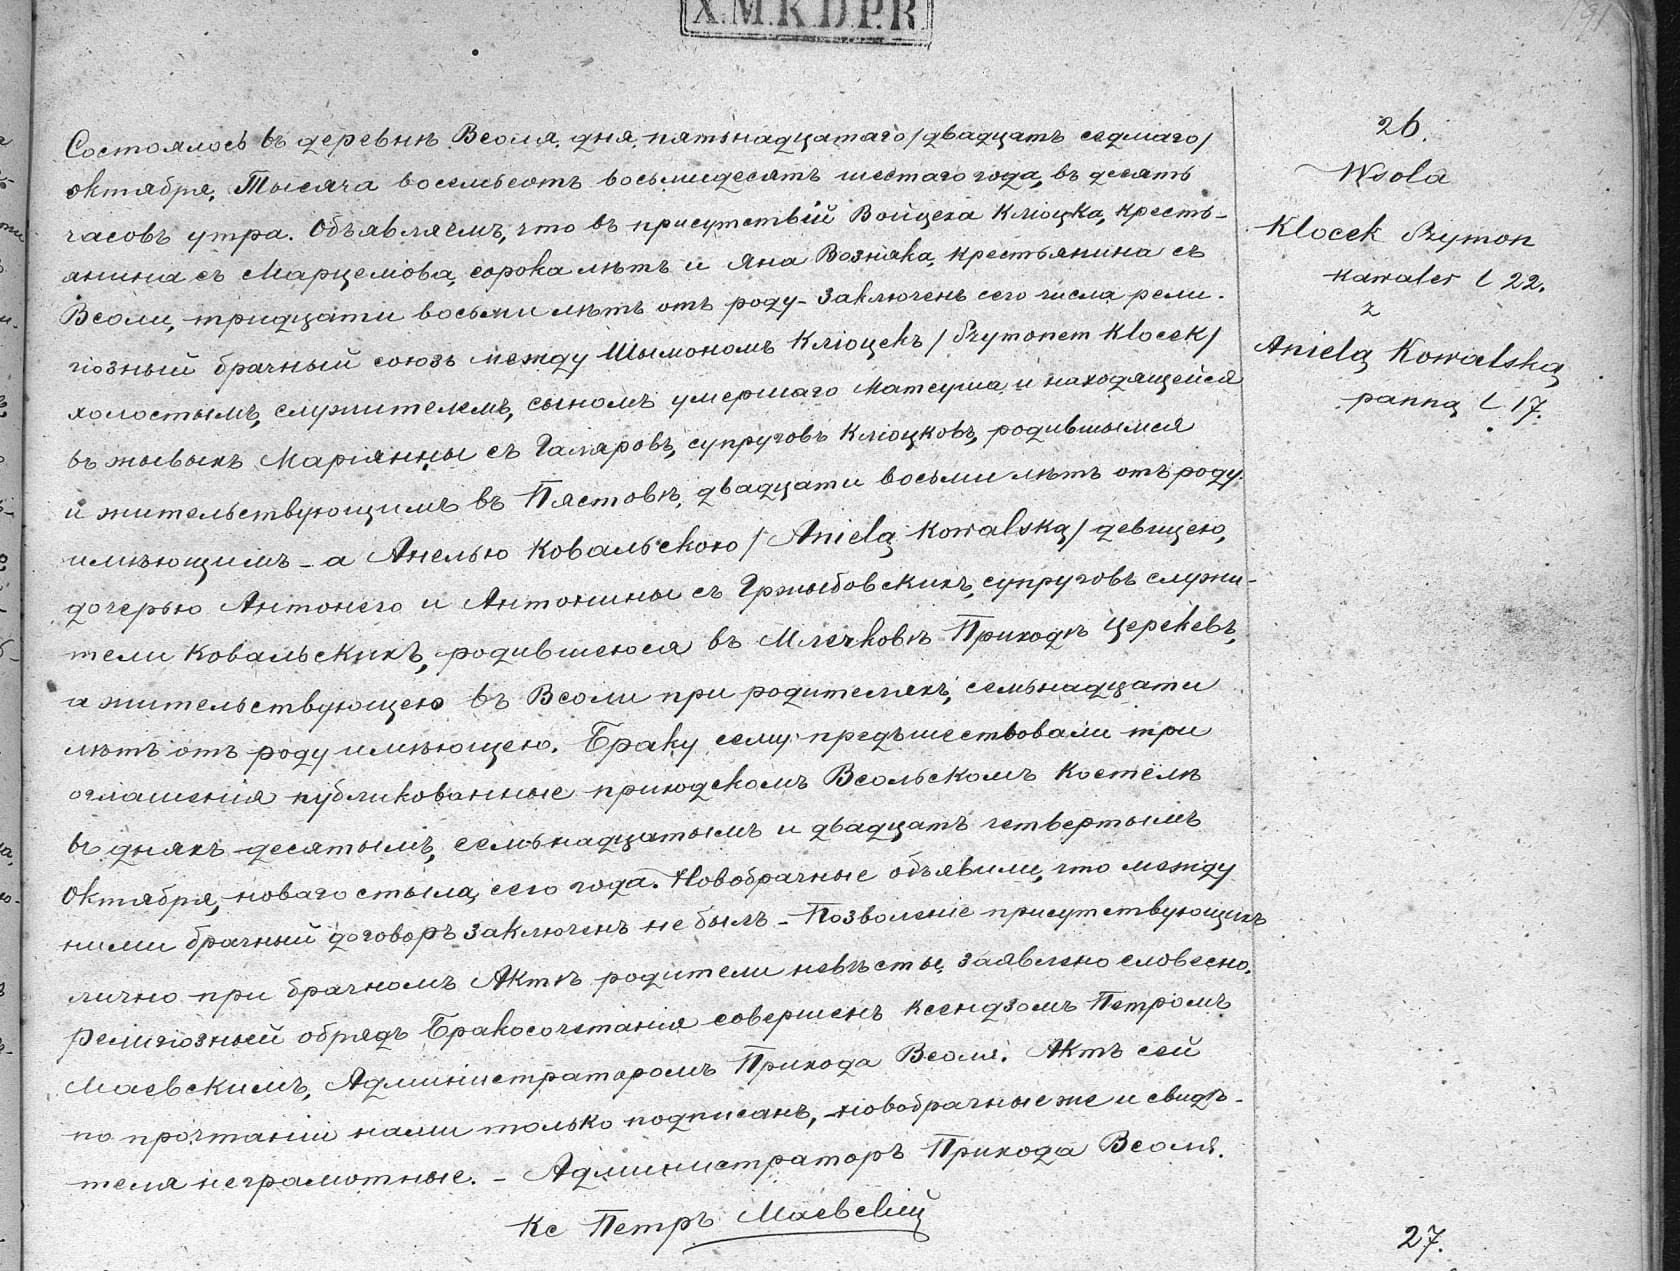 X.M.K.D.P.R
191
Состоялось въ деревнѣ Всоля, дня пятьнадцатаго/двадцать седмаго/
октября, Тысяча восемьсотъ восьмидесятъ шестаго года, въ десять
часовъ утра. Объявляемъ, что въ присутствій Войцеха Клюцка, кресть-
янина съ Марцелюва, сорока лѣтъ и Яна Возняка, крестьянина съ
Всоли, тридцати восьми лѣтъ отъ роду - Заключенъ сего числа рели-
гіозный брачный союзъ между Шымономъ Клюцекъ /Szymonem Klocek/
холостымъ, служителемъ, сыномъ умершаго Матеуша и находящейся
въ жывыхъ Маріянны съ Галяровъ, супруговъ Клюцковъ, родившымся
и жительствующимъ въ Пястовѣ, двадцати восьми лѣтъ отъ роду
имѣющимъ - а Анелью Ковальскою /Anielą Kowalską/ девицею,
дочерью Антонего и Антонины съ Гржыбовскихъ, супруговъ служи-
тели Ковальскихъ, родившеюся въ Млечковѣ Приходѣ Церекевъ,
а жительствующею въ Всоли при родителяхъ, семьнадцати
лѣтъ отъ роду имѣющею. Браку сему предъшествовали три
оглашенія публикованные приходскомъ Всольскомъ Костёлѣ
въ дняхъ десятымъ, семьнадцатымъ и двадцать четвертымъ
Октября, новаго стыля, сего года. Новобрачные объявили, что между
ними брачный договоръ заключенъ не былъ - Позволеніе присутствующихъ
лично при брачномъ Актѣ родители невѣсты, заявлено словесно.
Религіозный обрядъ Бракосочетанія совершенъ ксендзомъ Петромъ
Маевскимъ, Администраторомъ Прихода Всоля. Актъ сей
по прочтаніи нами только подписанъ, новобрачные же и свидѣ-
теля неграмотные. - Администраторъ Прихода Всоля.
Кс Петръ Маевскій
26.
Wsola
Klocek Szymon
kawaler l 22.
z
Anielą Kowalską
panną l 17.
27.